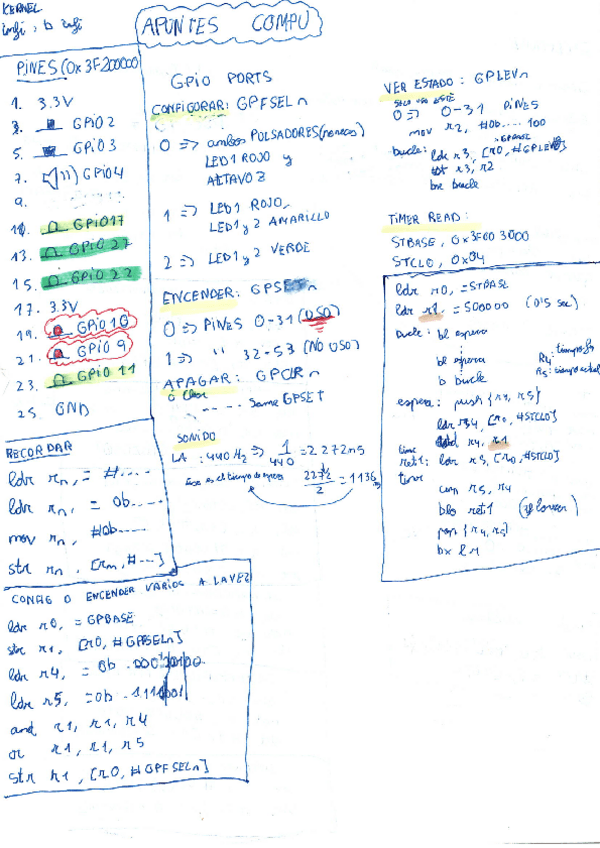 KERNEL
infi: b infi
APUNTES COMPU
PINES (0x3F200000)
1. 3.3V
3. GPiO 2
5. GPiO 3
7. GPiO4
9.
GPiO17
13. GPiO 27
15. GPiO 22
17. 3.3V
19. GPiO 10
21. GPiO 9
23. GPiO 11
25. GND
RECORDAR
ldr rn, = #....
ldr rn, = 0b.....
mov rn, #0b....
str rn, [rm, #...]
CONFIG O ENCENDER VARIOS A LA VEZ
ldr r0, = GPBASE
str r1, [r0, #GPFSELn]
ldr r4, = 0b
ldr r5, = 0b
and r1, r1, r4
or r1, r1, r5
str r1, [r0, #GPFSELn]
GPiO PORTS
CONFIGURAR: GPFSELn
0 => ambos PULSADORES
LED1 ROJO y
ALTAVOZ
1 => LED1 ROJO,
LED1 y 2 AMARILLO
2 => LED1 y 2 VERDE
ENCENDER: GPSETn
0 => PiNES 0-31 (USO)
1 => " 32-53 (NO USO)
APAGAR: GPCLRn
o Clear
..... Same GPSET
SONIDO
LA : 440Hz => 1/440 = 2272ns
Ese es el tiempo de espera 2272/2 = 1136
VER ESTADO: GPLEVn
solo uso este
0 => 0-31 PiNES
mov r2, #0b....100
GPBASE
bucle: ldr r3, [r0, #GPLEV0]
tst r3, r2
bne bucle
TIMER READ:
STBASE, 0x3F003000
STCLO, 0x04
ldr r0, =STBASE
ldr r1, = 500000 (0'5 sec)
bucle: bl espera
bl espera
b bucle
R4: tiempo fin
R5: tiempo actual
espera: push {r4, r5}
ldr r4, [r0, #STCLO]
add r4, r1
ret1: ldr r5, [r0, #STCLO]
cmp r5, r4
blo ret1 (if lower)
pop {r4, r5}
bx lr